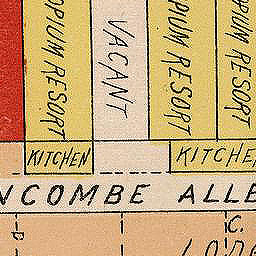 OPIUM RESORT
VACANT
OPIUM RESORT
OPIUM RESORT
KITCHEN
KITCHEN
NCOMBE ALLE
C.